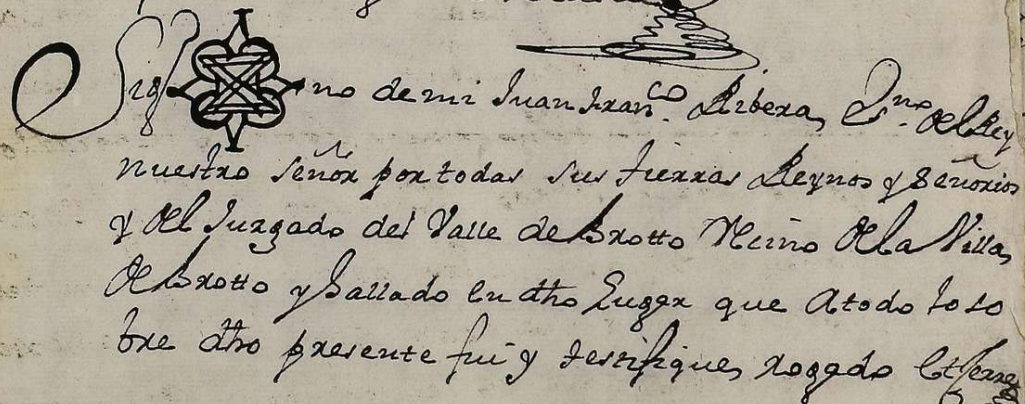 Sig no de mi Juan Fran.co Ribera, Es.no del Rey
nuestro señor por todas sus tierras Reynos y señorios
y del Juzgado del Valle de Brotto Vecino de la Villa,
de Brotto y hallado en dho Lugar que a todo lo so
bre dho presente fui y testifique, rogado et Cerre